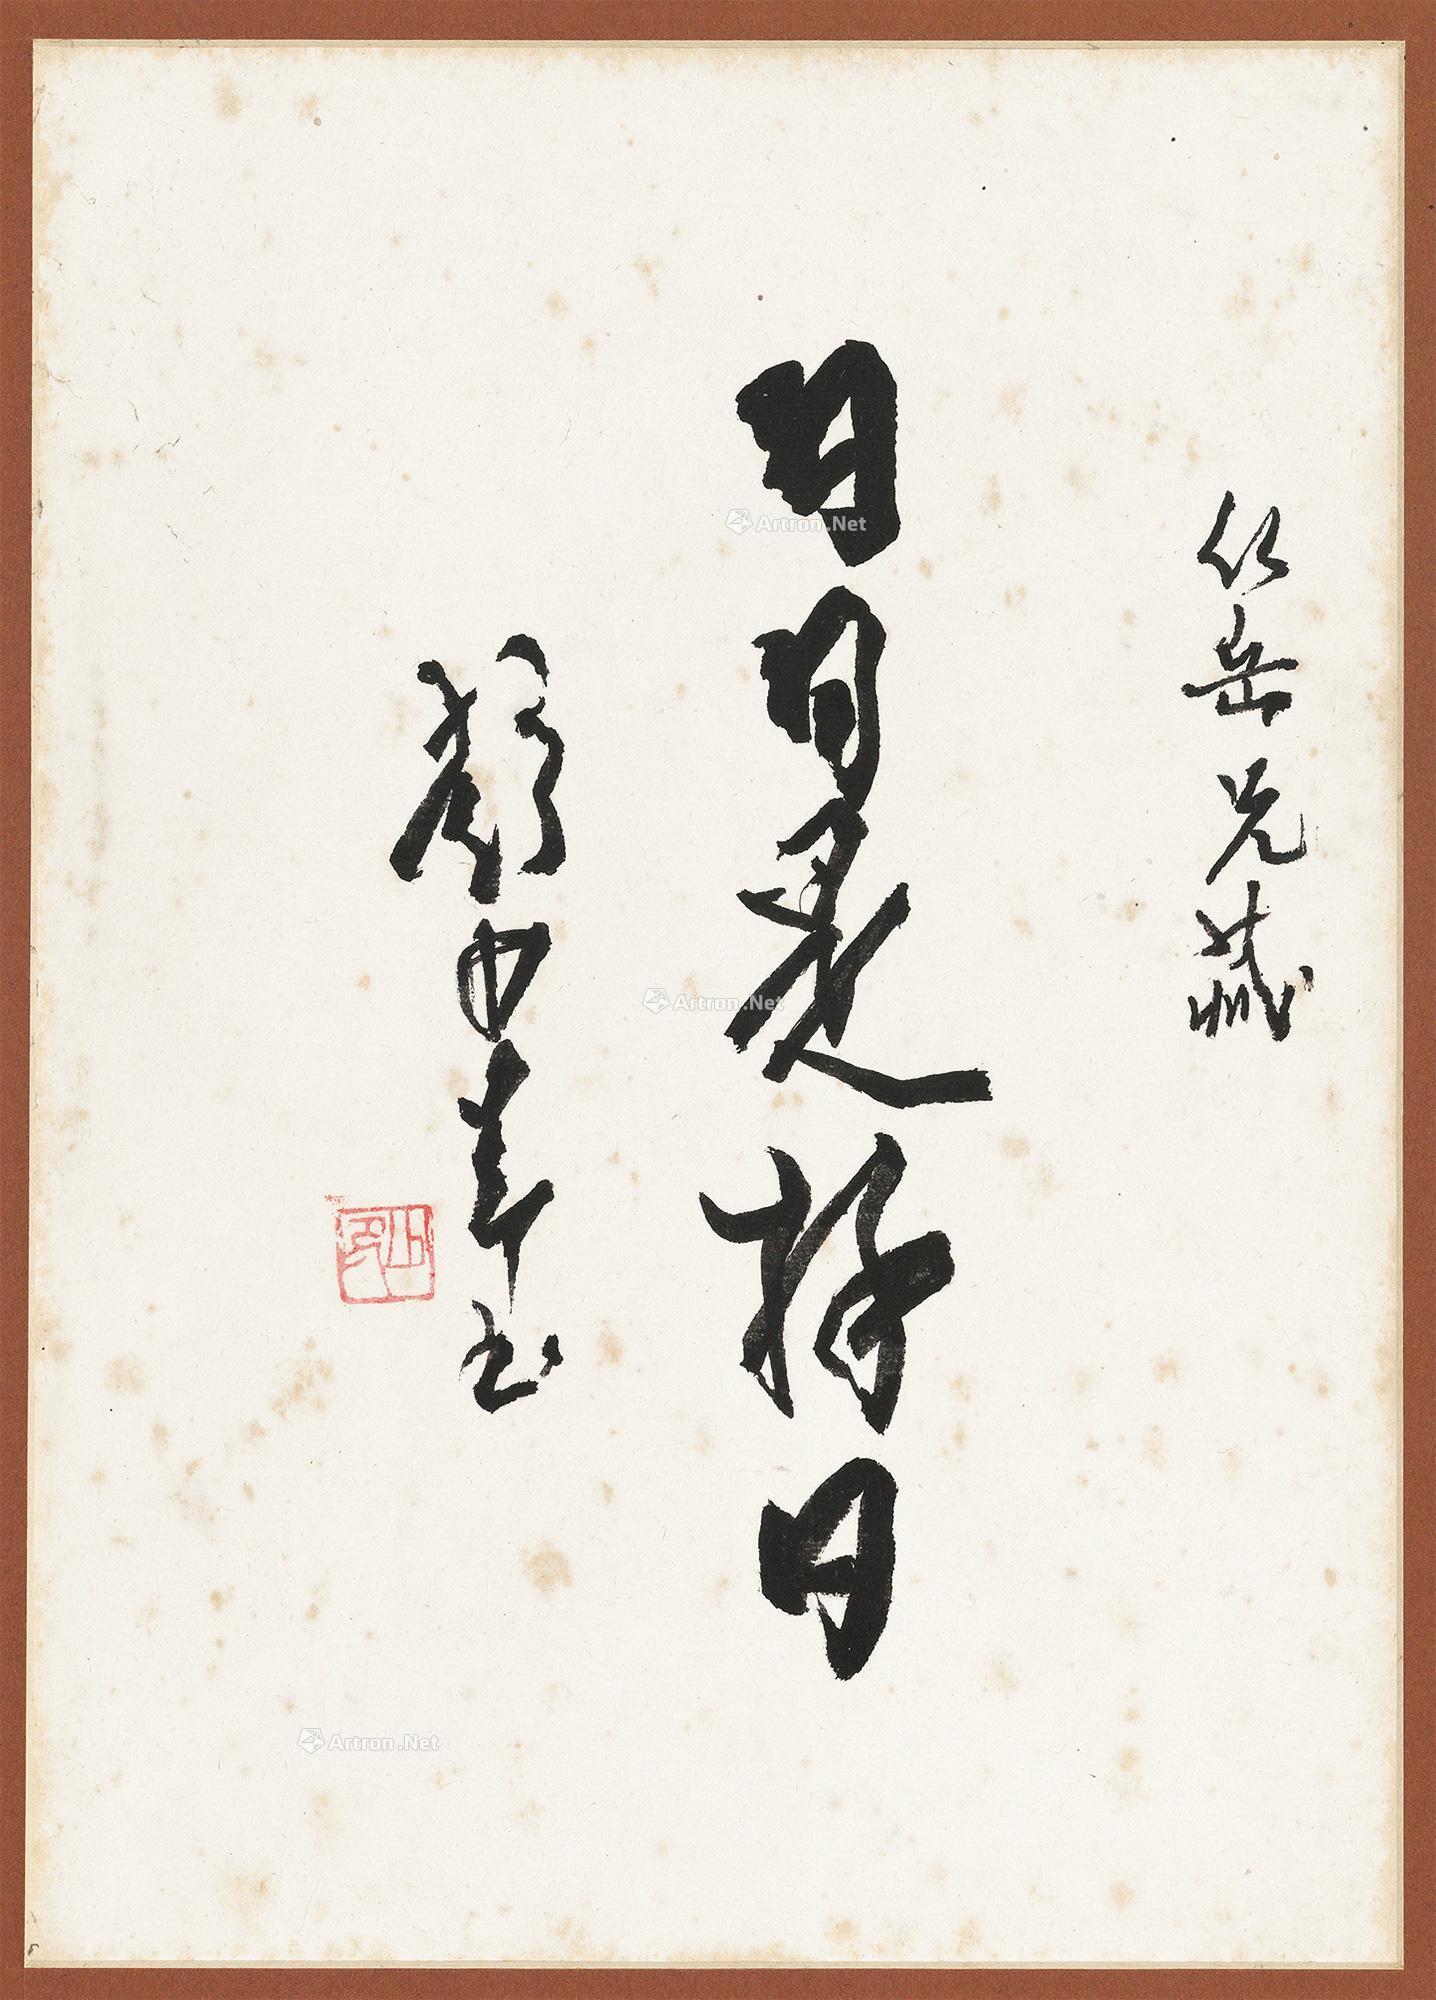 仁岳兄藏
日日是好日
書
Artron.Net
Artron.Net
Artron.Net